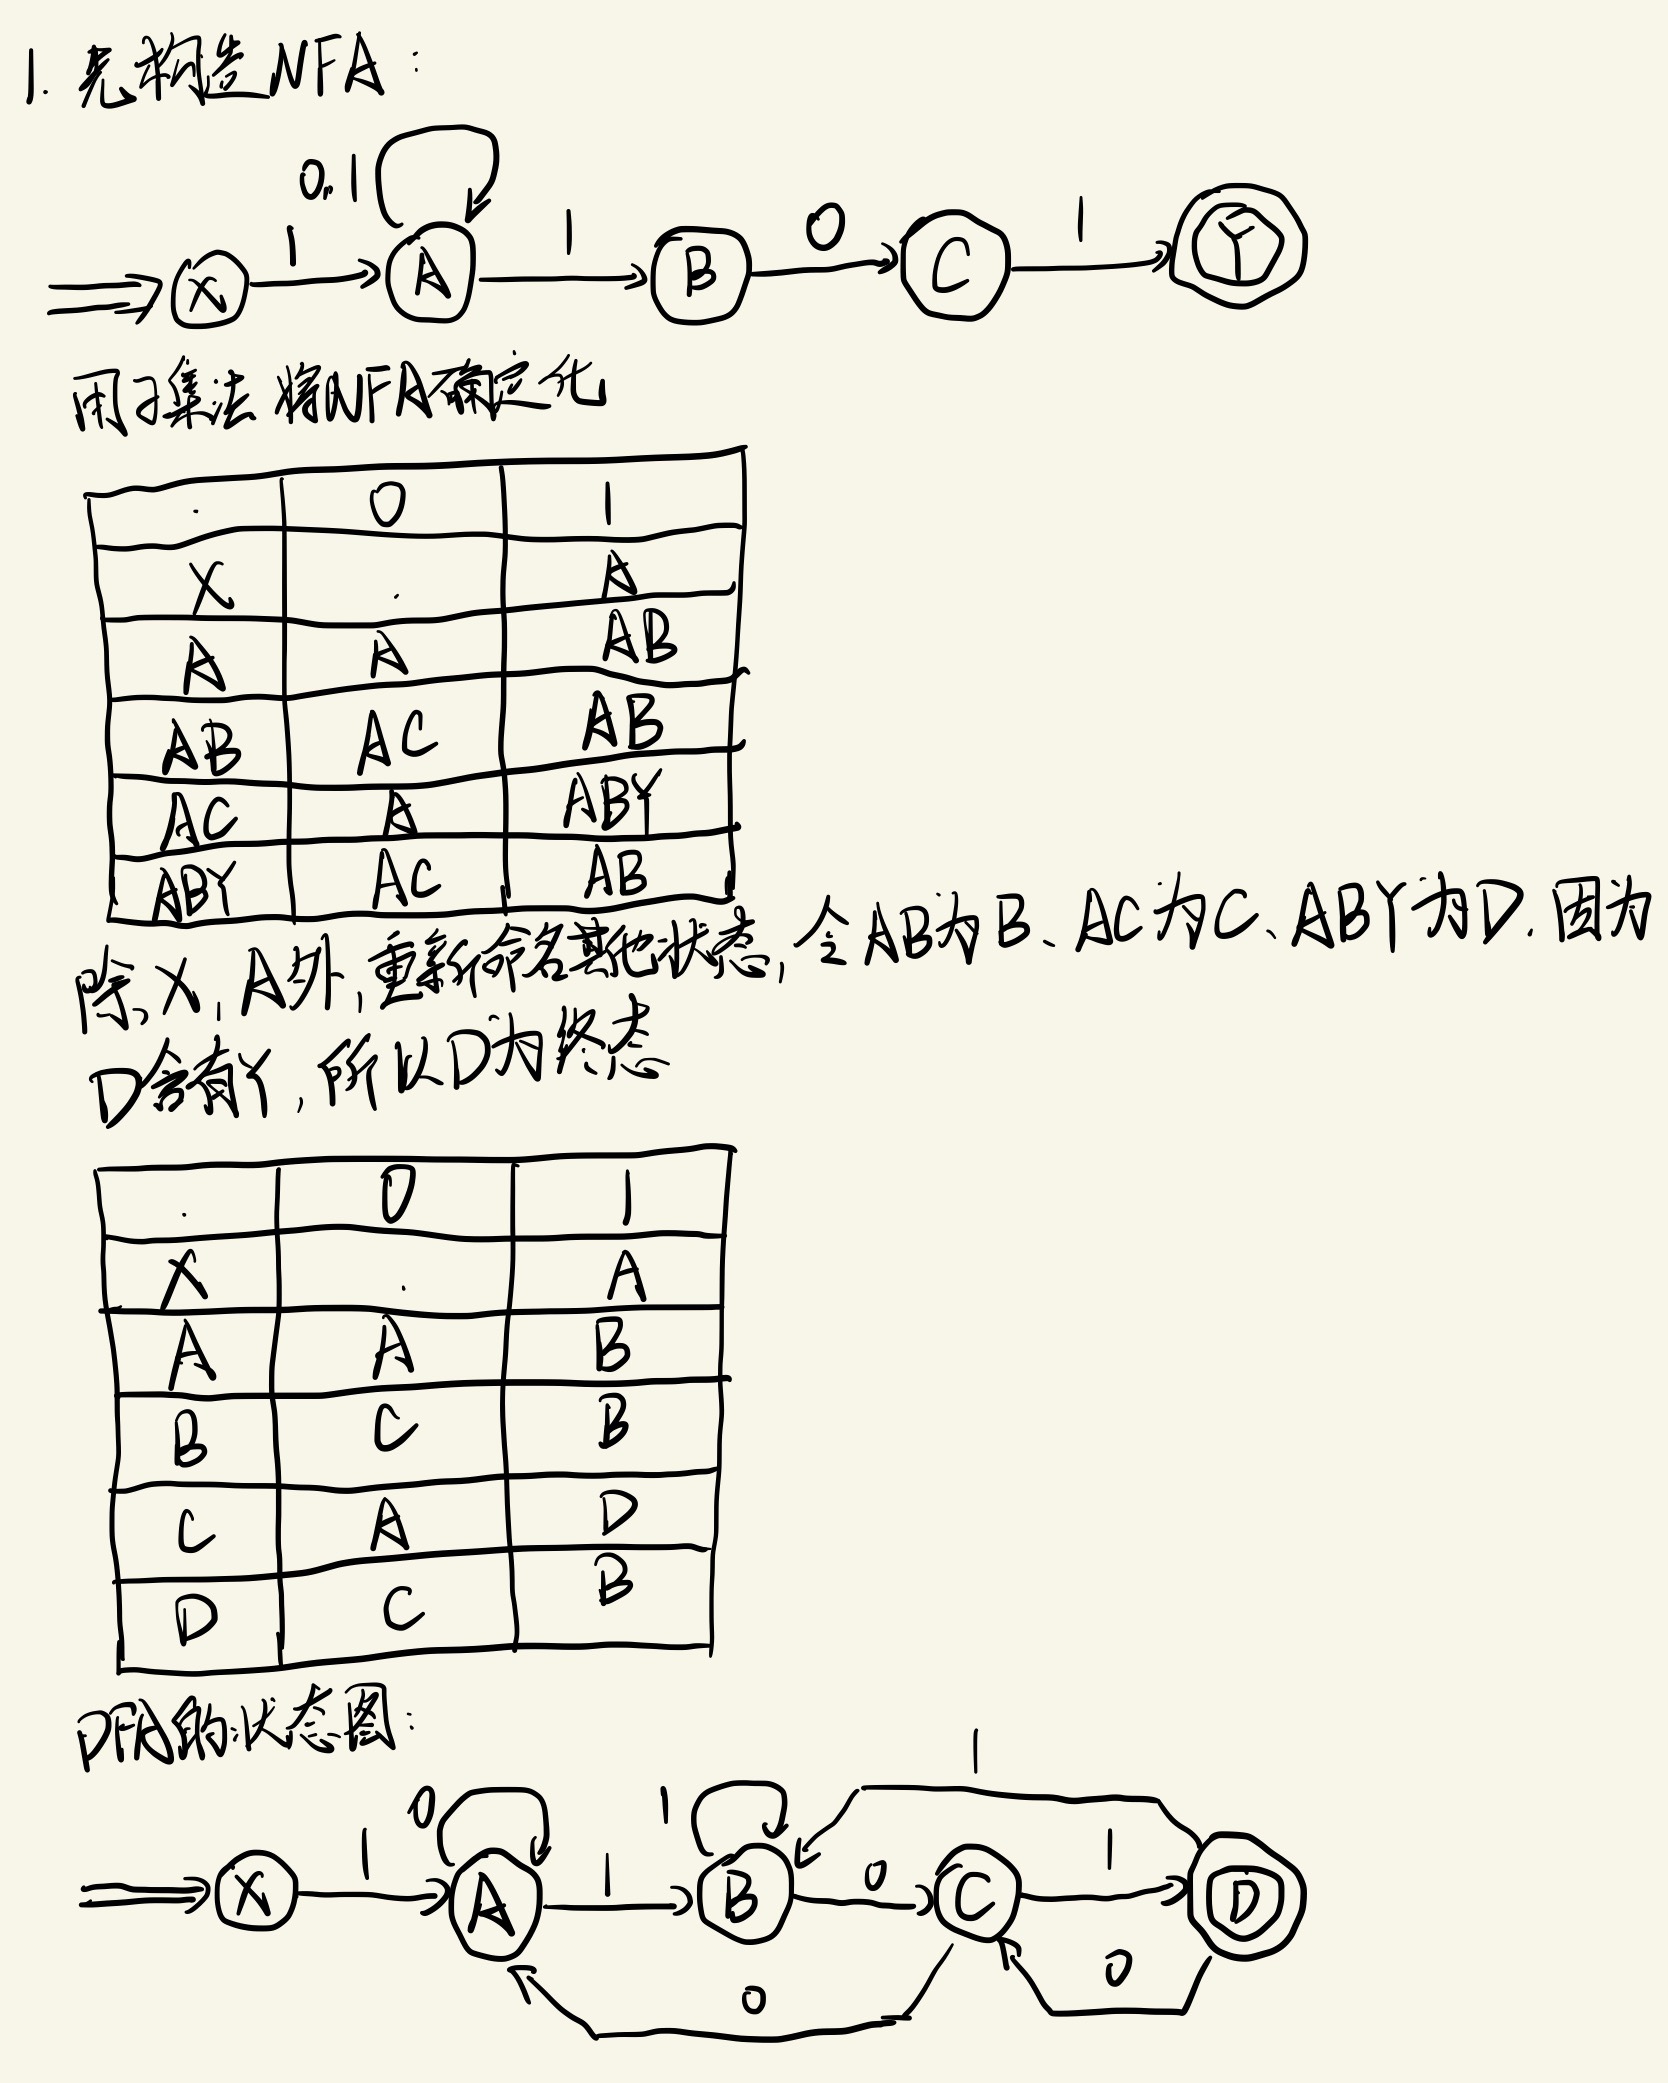 1. 先构造NFA:
0,1
1
1
0
1
X
A
B
C
Y
用子集法将NFA确定化
0 1
X A
A A AB
AB AC AB
AC A ABY
ABY AC AB
除X,A外,重新命名其他状态,令AB为B、AC为C、ABY为D.因为
D含有Y,所以D为终态
0 1
X A
A A B
B C B
C A D
D C B
DFA的状态图:
1
0
1
1
1
0
1
X
A
B
C
D
0
0